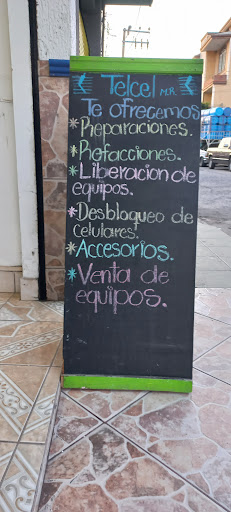 Telcel M.R.
Te ofrecemos
*Preparaciones.
*Refacciones.
*Liberacion de
equipos.
*Desbloqueo de
celulares.
*Accesorios.
*Venta de
equipos.